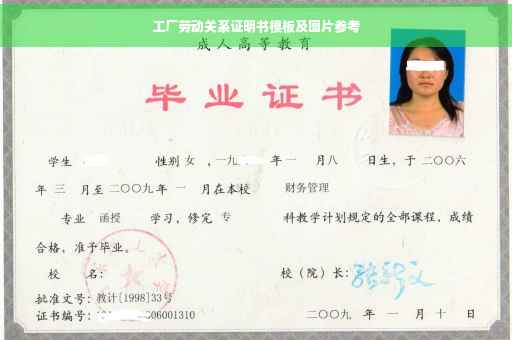 工厂劳动关系证明书模板及图片参考
成人高等教育
毕业证书
学生 性别 女 ，一九 年 一 月 八 日生，于 二〇〇六
年 三 月至 二〇〇九 年 一 月在本校 财务管理
专业 函授 学习，修完 专 科教学计划规定的全部课程，成绩
合格，准予毕业。
校 名： 校（院）长：
批准文号：教计[1998]33号
证书编号： 06001310 二〇〇九 年 一 月 十 日